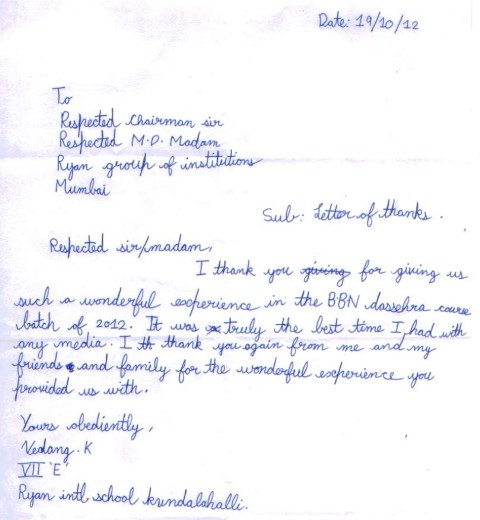 Date: 19/10/12
To
Respected Chairman sir
Respected M.D. Madam
Ryan group of institutions
Mumbai
Sub: Letter of thanks.
Respected sir/madam,
I thank you giving for giving us
such a wonderful experience in the BBN dassehra course
batch of 2012. It was truly the best time I had with
any media. I thank you again from me and my
friends and family for the wonderful experience you
provided us with.
Yours obediently,
Vedang.K
VII 'E'
Ryan intl school kundalahalli.